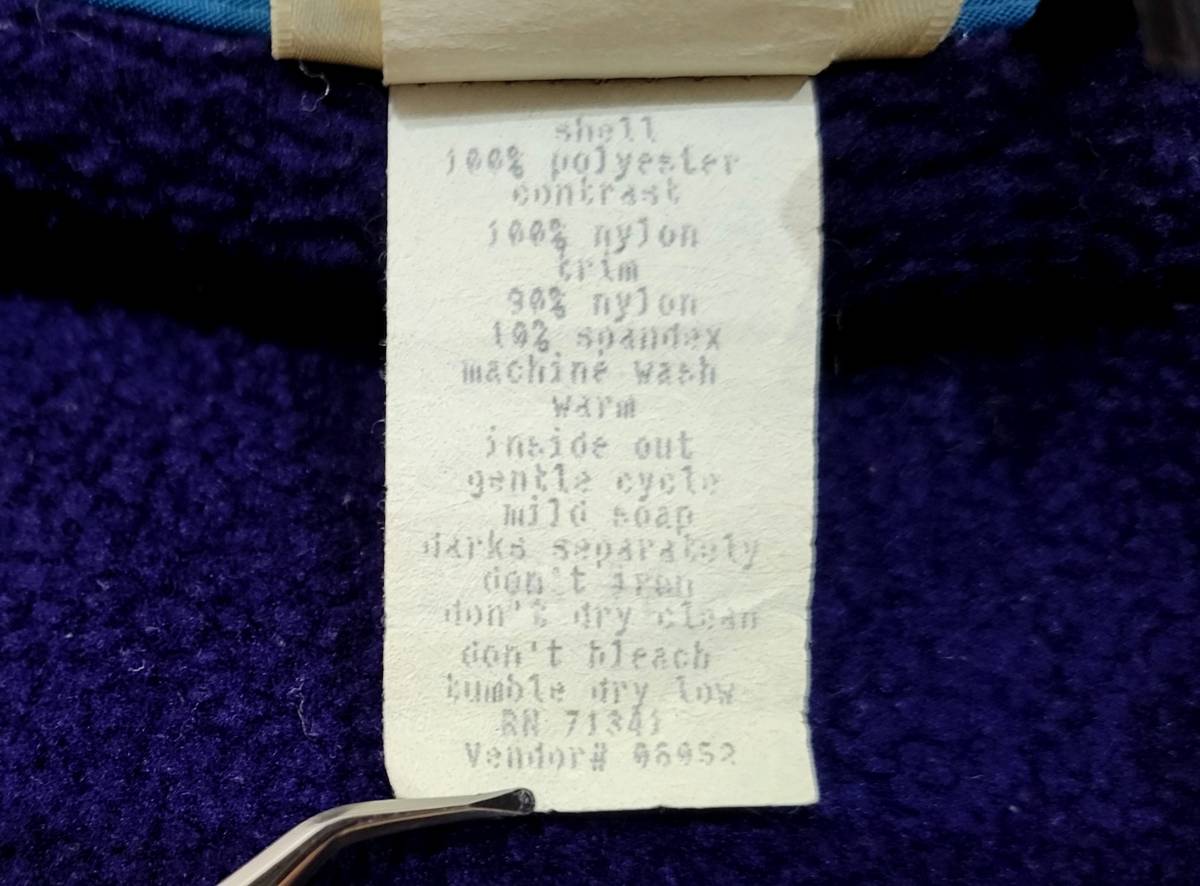 shell
100% polyester
contrast
100% nylon
trim
90% nylon
10% spandex
machine wash
warm
inside out
gentle cycle
mild soap
darks separately
don't iron
don't dry clean
don't bleach
tumble dry low
RN 71341
Vendor#